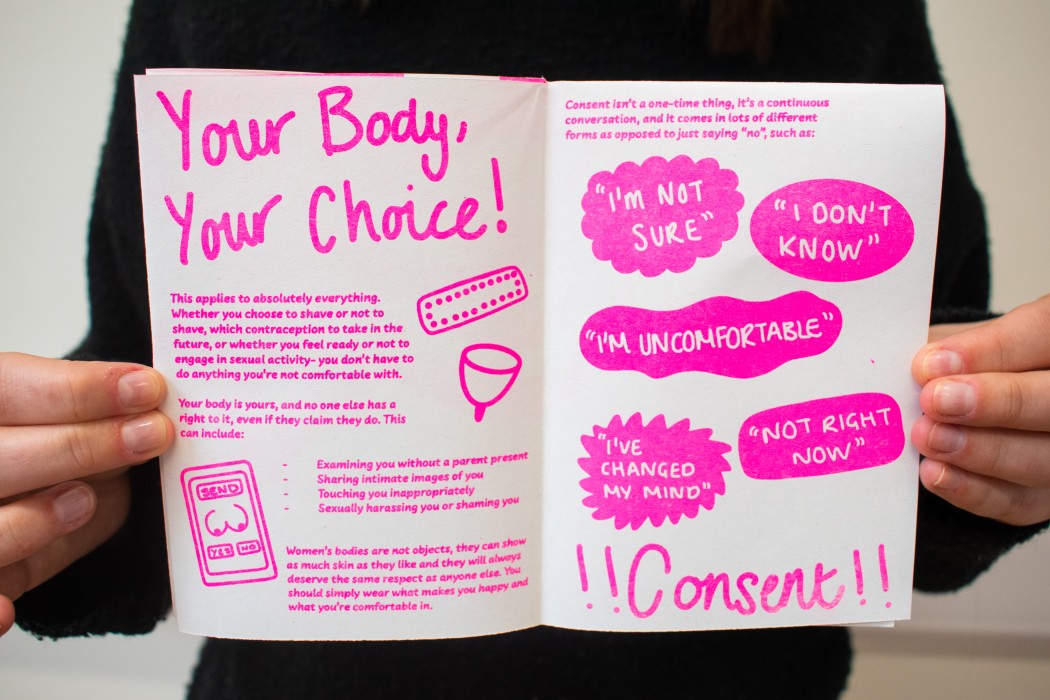 Your Body,
Your Choice!
This applies to absolutely everything.
Whether you choose to shave or not to
shave, which contraception to take in the
future, or whether you feel ready or not to
engage in sexual activity- you don't have to
do anything you're not comfortable with.
Your body is yours, and no one else has a
right to it, even if they claim they do. This
can include:
- Examining you without a parent present
- Sharing intimate images of you
- Touching you inappropriately
- Sexually harassing you or shaming you
SEND
YES NO
Women's bodies are not objects, they can show
as much skin as they like and they will always
deserve the same respect as anyone else. You
should simply wear what makes you happy and
what you're comfortable in.
Consent isn't a one-time thing, it's a continuous
conversation, and it comes in lots of different
forms as opposed to just saying "no", such as:
"I'M NOT
SURE"
"I DON'T
KNOW"
"I'M UNCOMFORTABLE"
"I'VE
CHANGED
MY MIND"
"NOT RIGHT
NOW"
!!Consent!!